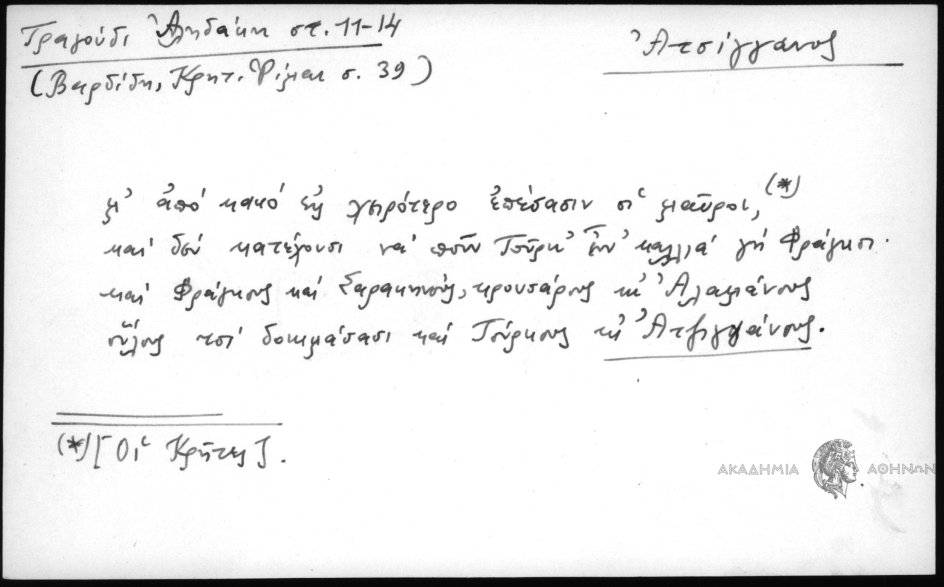 Τραγούδι Ἀληδάκη στ. 11-14
(Βαρδίδη, Κρητ. Ρίμαι σ. 39)
Ἀτσίγγανος
κι' ἀπό κακό εἰς χειρότερο ἐπέσασιν οἱ μαῦροι, (*)
καί δέν κατέχουσι νά ποῦν Τοῦρκ' ἦν' καλλιά γή Φράγκοι.
καί Φράγκους καί Σαρακηνούς, κρουσάρους κι' Ἀλαμάνους
οὕλους τσί δοκιμάσασι καί Τούρκους κι' Ἀτζιγγάνους.
(*) [Οἱ Κρῆτες].
ΑΚΑΔΗΜΙΑ ΑΘΗΝΩΝ